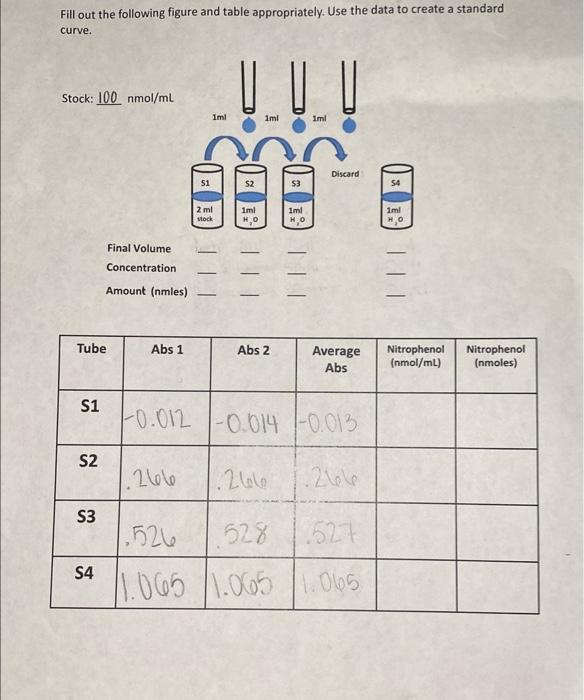 Fill out the following figure and table appropriately. Use the data to create a standard
curve.
Stock: 100 nmol/mL
1ml 1ml 1ml
Discard
S1 S2 S3 S4
2 ml stock 1ml H2O 1ml H2O 1ml H2O
Final Volume
Concentration
Amount (nmles)
Tube Abs 1 Abs 2 Average Abs Nitrophenol (nmol/mL) Nitrophenol (nmoles)
S1 -0.012 -0.014 -0.013
S2 .266 .266 .266
S3 .526 .528 .527
S4 1.065 1.065 1.065